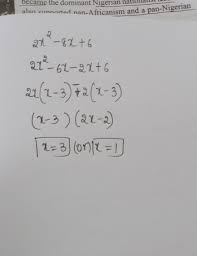 became the dominant Nigerian nationalist
also supported pan-Africanism and a pan-Nigerian
2x² - 8x + 6
2x² - 6x - 2x + 6
2x(x-3) - 2(x-3)
(x-3) (2x-2)
x=3 (or) x=1